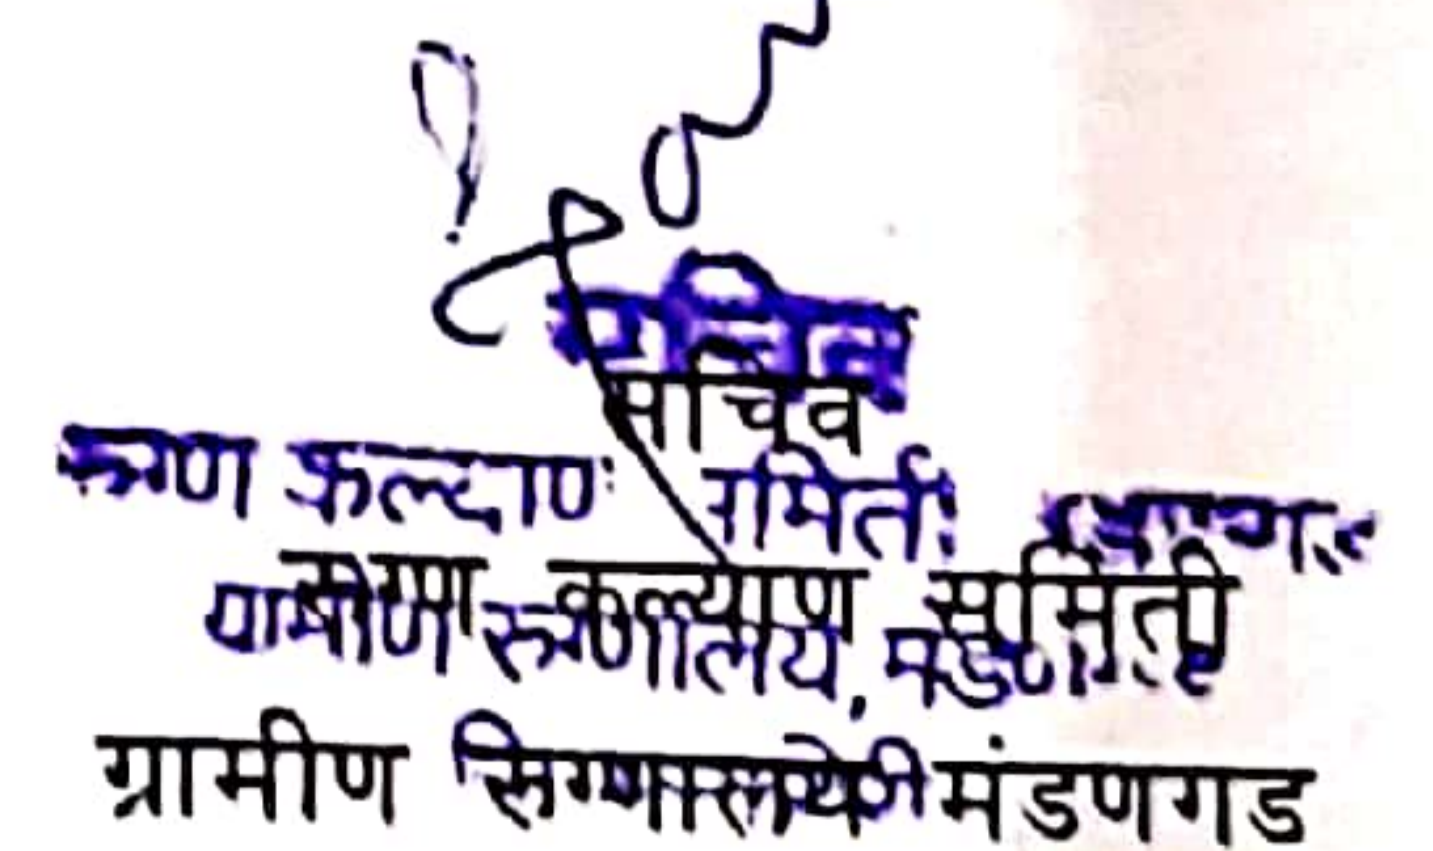 सचिव
सचिव
रुग्ण कल्याण समिती
रुग्ण कल्याण समिती
ग्रामीण रुग्णालय, मंडणगड
ग्रामीण मंडणगड